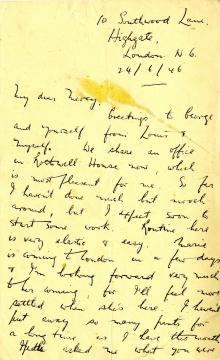 10 Southwood Lane,
Highgate,
London N.6.
24/6/46
My dear Mercy,
Greetings to George
and yourself from Louis &
myself. We share an office
in Rockwell House now, which
is most pleasant for me. So far
I haven't done much but mooch
around, but I expect soon to
start some work. Routine here
is very elastic & easy. Marie
is coming to London in a few days
& I'm looking forward very much
to her coming, for I'll feel more
settled when she's here. I haven't
put away so many pints for
a long time as I have this week
asked me what you were